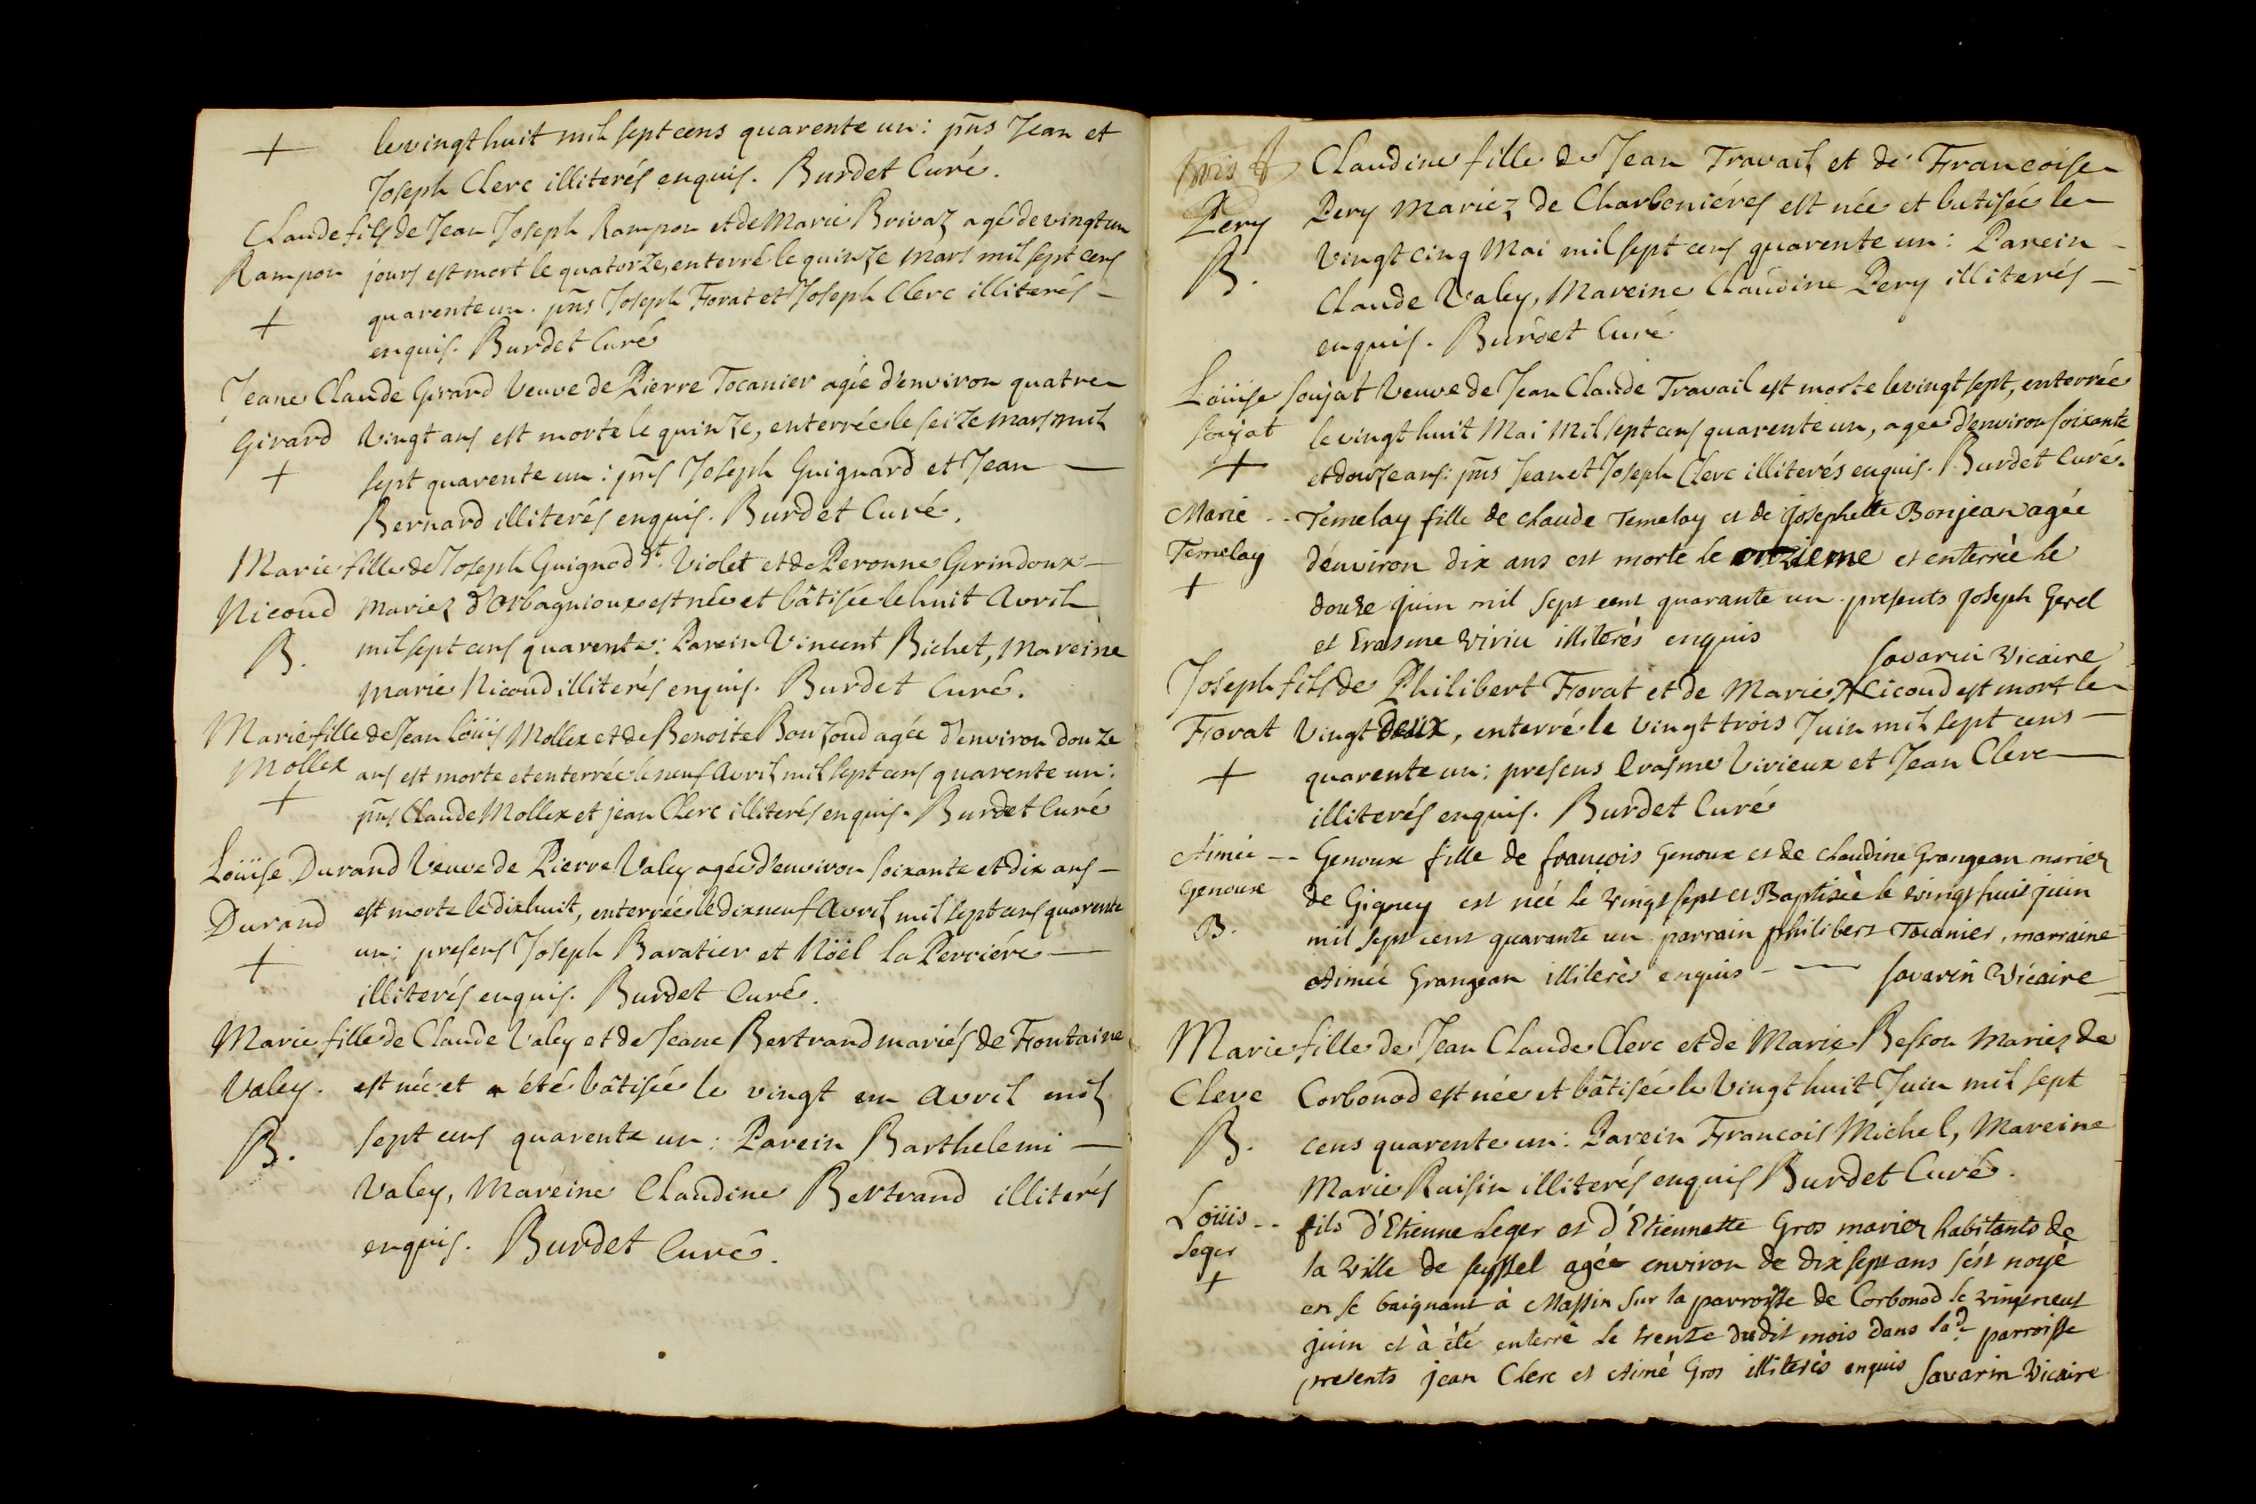 + le vingt huit mil sept cens quarente un: pñs Jean et
Joseph Clerc illiterés enquis. Burdet Curé.
Claude fils de Jean Joseph Rampon et de Marie Brivaz agé de vingt un
Rampon jours est mort le quatorze, enterré le quinze mars mil sept cens
+ quarente un. pñs Joseph Forat et Joseph Clerc illiterés
enquis. Burdet Curé
Jeane Claude Girard Veuve de Pierre Tocanier agée d'environ quatre
Girard Vingt ans est morte le quinze, enterrée le seize mars mil
+ sept quarente un: pñs Joseph Guignard et Jean
Bernard illiterés enquis. Burdet Curé.
Marie fille de Joseph Guignod dt. Violet et de Peronne Gerindoux
Nicoud Mariez d'Orbagnioux est née et bâtisée le huit Avril
B. mil sept cens quarente: Parein Vincent Bichet, Mareine
Marie Nicoud illiterés enquis. Burdet Curé.
Marie fille de Jean Loüis Mollex et de Benoite Bouzoud agée d'environ douze
Mollex ans est morte et enterrée le neuf Avril mil sept cens quarente un:
+ pñs Claude Mollex et jean Clerc illiterés enquis. Burdet Curé
Loüise Durand Veuve de Pierre Valey agée d'environ soixante et dix ans
Durand est morte le dix huit, enterrée le dix neuf Avril mil sept cens quarente
+ un: presens Joseph Baratier et Nöel La Perriére
illiterés enquis. Burdet Curé.
Marie fille de Claude Valey et de Jeane Bertrand mariés de Fontaine
Valey. est née et a été bâtisée le vingt un Avril mil
B. sept cens quarente un: Parein Barthelemi
Valey, Maréine Claudine Bertrand illiterés
enquis. Burdet Curé.
Claudine fille de Jean Travail et de Francoise
Pery Pery Mariez de Charboniéres est née et batisée le
B. Vingt cinq Mai mil sept cens quarente un: Parein
Claude Valey, Mareine Claudine Pery illiterés
enquis. Burdet Curé
Loüise Soujat Veuve de Jean Claude Travail est morte le vingt sept, enterrée
Soujat le vingt huit Mai Mil sept cens quarente un, agée d'environ soixante
+ et douze ans: pñs Jean et Joseph Clerc illiterés enquis. Burdet Curé.
Marie -- Temelay fille de claude Temelay et de Josephette Bonjean agée
Temelay d'environ dix ans est morte le onzieme et enterrée le
+ douze juin mil sept cent quarante un. presents Joseph Gerel
et Erasme Viriu illiterés enquis
Savarin Vicaire
Joseph fils de Philibert Forat et de Marie Nicoud est mort le
Forat Vingt deux, enterré le vingt trois Juin mil sept cens
+ quarente un: presens Erasme Virieux et Jean Clerc
illiterés enquis. Burdet Curé
Aimée -- Genoux fille de françois Genoux et de claudine Grangean mariez
Genoux de Gigney est née le vingt sept et Baptisée le vingt huit juin
B. mil sept cent quarante un. parrain philibert Tocanier, marraine
Aimée Grangean illiterés enquis - Savarin Vicaire
Marie fille de Jean Claude Clerc et de Marie Besson Mariez de
Clerc Corbonod est née et bâtisée le Vingt huit Juin mil sept
B. cens quarente un: Parein Francois Michel, Mareine
Marie Raisin illiterés enquis Burdet Curé.
Loüis -- fils d'Etienne Leger et d'Etiennette Gros mariez habitants de
Leger la Ville de Seyssel agée environ de dix sept ans s'est noyé
+ en se baignant à Massin sur la parroisse de Corbonod le vingt neuf
juin et à été enterré le trente dudit mois dans lad. parroisse
presents jean Clerc et Aimé Gros illiterés enquis Savarin Vicaire